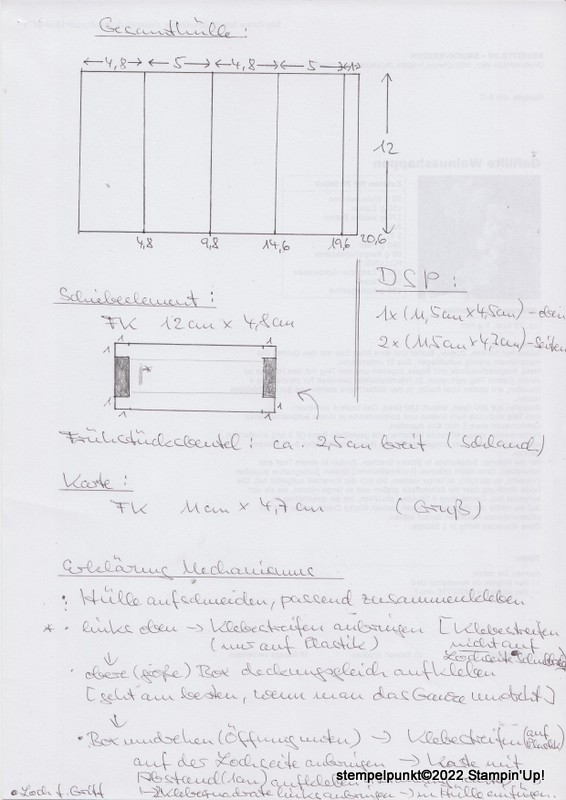 Gesamthülle:
4,8 5 4,8 5 1
12
4,8 9,8 14,6 19,6 20,6
DSP:
1x (11,5cm x 4,5cm) - oben
2x (11,5cm x 4,7cm) - Seiten
Schiebeelement:
FK 12cm x 4,8cm
1 1
*
1 1
Frühstücksbeutel: ca. 2,5cm breit (Schlauch)
Karte:
FK 11cm x 4,7cm (Gruß)
Erklärung Mechanismus
: Hülle aufschneiden, passend zusammenkleben
* · links oben → Klebestreifen anbringen [Klebestreifen
(nur auf Plastik) nicht auf
· obere (große) Box deckungsgleich aufkleben
[geht am besten, wenn man das Ganze umdreht]
· Box umdrehen (Öffnung unten) → Klebestreifen (auf Plastik)
auf der Lochseite anbringen → Karte mit
Abstand (1cm) aufkleben
stempelpunkt©2022 Stampin'Up!
Loch f. Griff → Klebequadrate links anbringen → in Hülle einfügen.